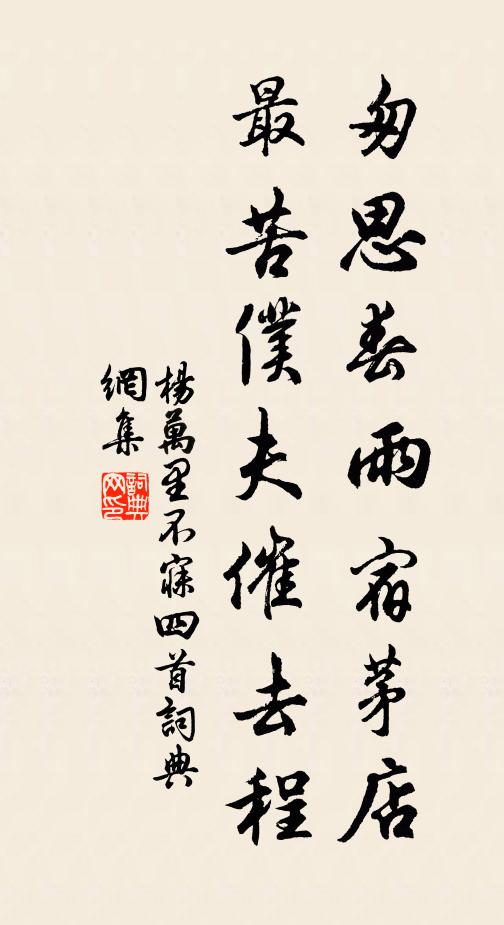 匆思春雨宿茅店
最苦僕夫催去程
楊萬里不寐四首詞典
網集
詞典
网印